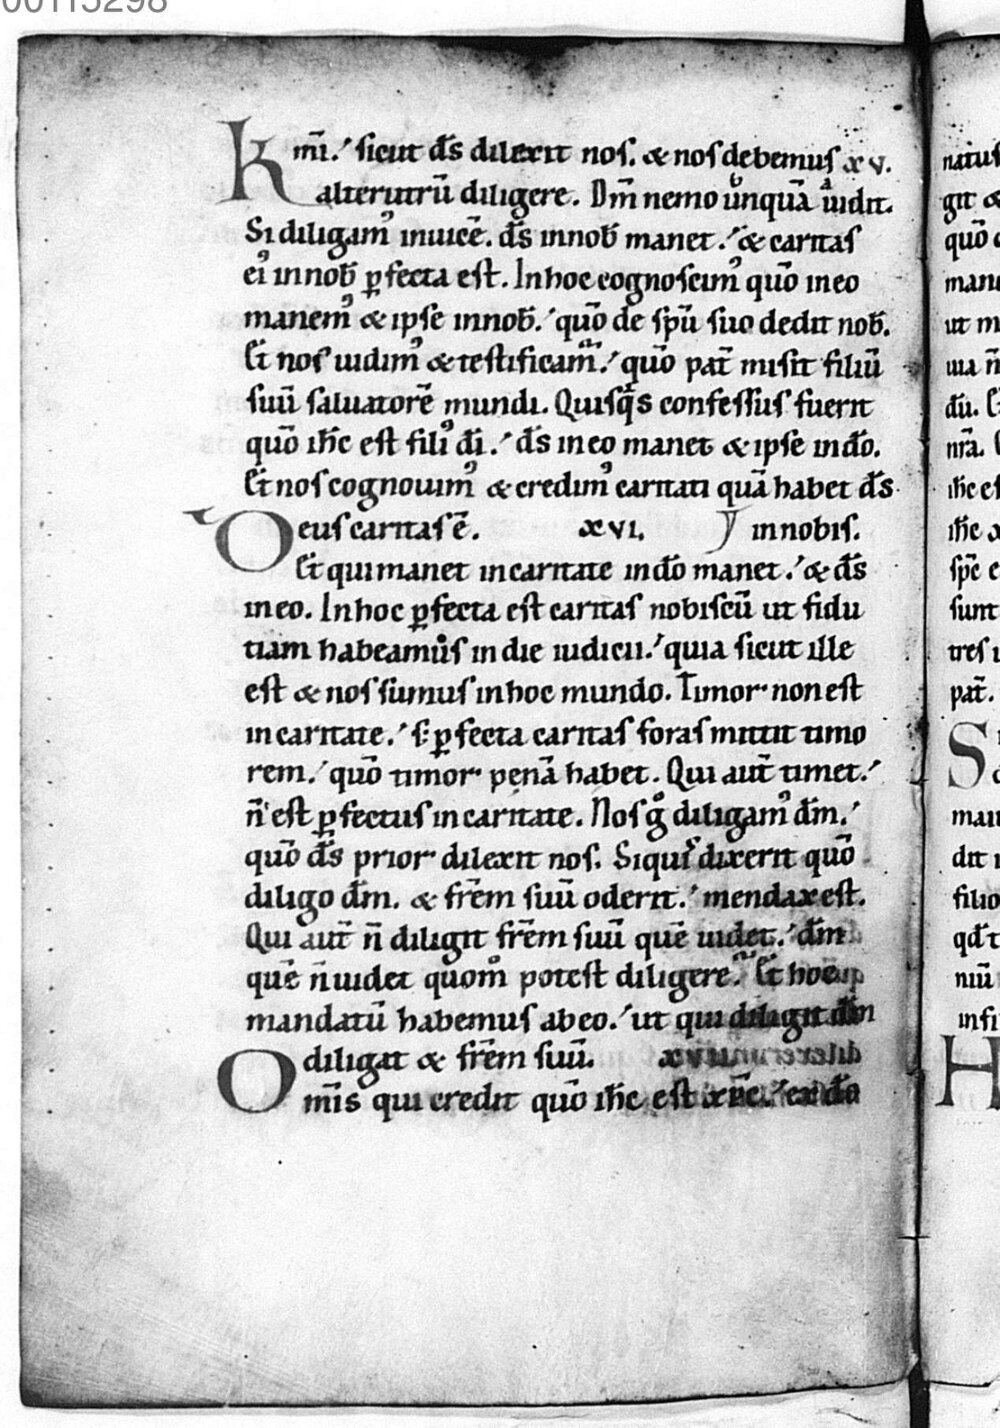 00115298
Km̅i.ʼ sicut d̅s dilexit nos. & nos debemus xv.
alterutru̅ diligere. D̅m nemo unqua̅ uidit.
Si diligamꝰ inuice̅. d̅s in nob̅ manet.ʼ & caritas
eiꝰ in nob̅ ꝑfecta est. In hoc cognoscimꝰ quo̅ in eo
manemꝰ & ipse in nob̅.ʼ quo̅ de sp̅u suo dedit nob̅.
Et nos uidimꝰ & testificamꝰ.ʼ quo̅ pat̅ misit filiu̅
suu̅ saluatore̅ mundi. Quisq̇s confessus fuerit
quo̅ ih̅c est filiꝰ d̅i.ʼ d̅s in eo manet & ipse in d̅o.
Et nos cognouimꝰ & credimꝰ caritati qua̅ habet d̅s
Deus caritas e̅. xvi. in nobis.
Et qui manet in caritate in d̅o manet.ʼ & d̅s
in eo. In hoc ꝑfecta est caritas nobiscu̅ ut fidu
tiam habeamus in die iudicii.ʼ quia sicut ille
est & nos sumus in hoc mundo. Timor non est
in caritate.ʼ s; ꝑfecta caritas foras mittit timo
rem.ʼ quo̅ timor pena̅ habet. Qui aut̅ timet.ʼ
n̅ est ꝑfectus in caritate. Nos gͦ diligamꝰ d̅m.ʼ
quo̅ d̅s prior dilexit nos. Si quis dixerit quo̅
diligo d̅m. & fr̅em suu̅ oderit.ʼ mendax est.
Qui aut̅ n̅ diligit fr̅em suu̅ que̅ uidet.ʼ d̅m
que̅ n̅ uidet quomͦ potest diligere. Et hoc
mandatu̅ habemus ab eo.ʼ ut qui diligit d̅m
diligat & fr̅em suu̅. xvii
Om̅is qui credit quo̅ ih̅c est xp̅c.ʼ ex d̅o